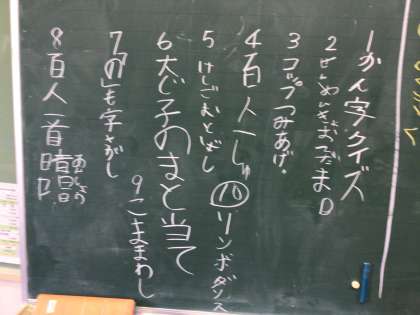 1かん字クイズ
2せんめんきおてだま
3コップつみあげ
4百人一しゅ
⑩リンボダンス
5けしごむとばし
6太じ子のまと当て
9こままわし
7「の」も字さがし
8百人一首